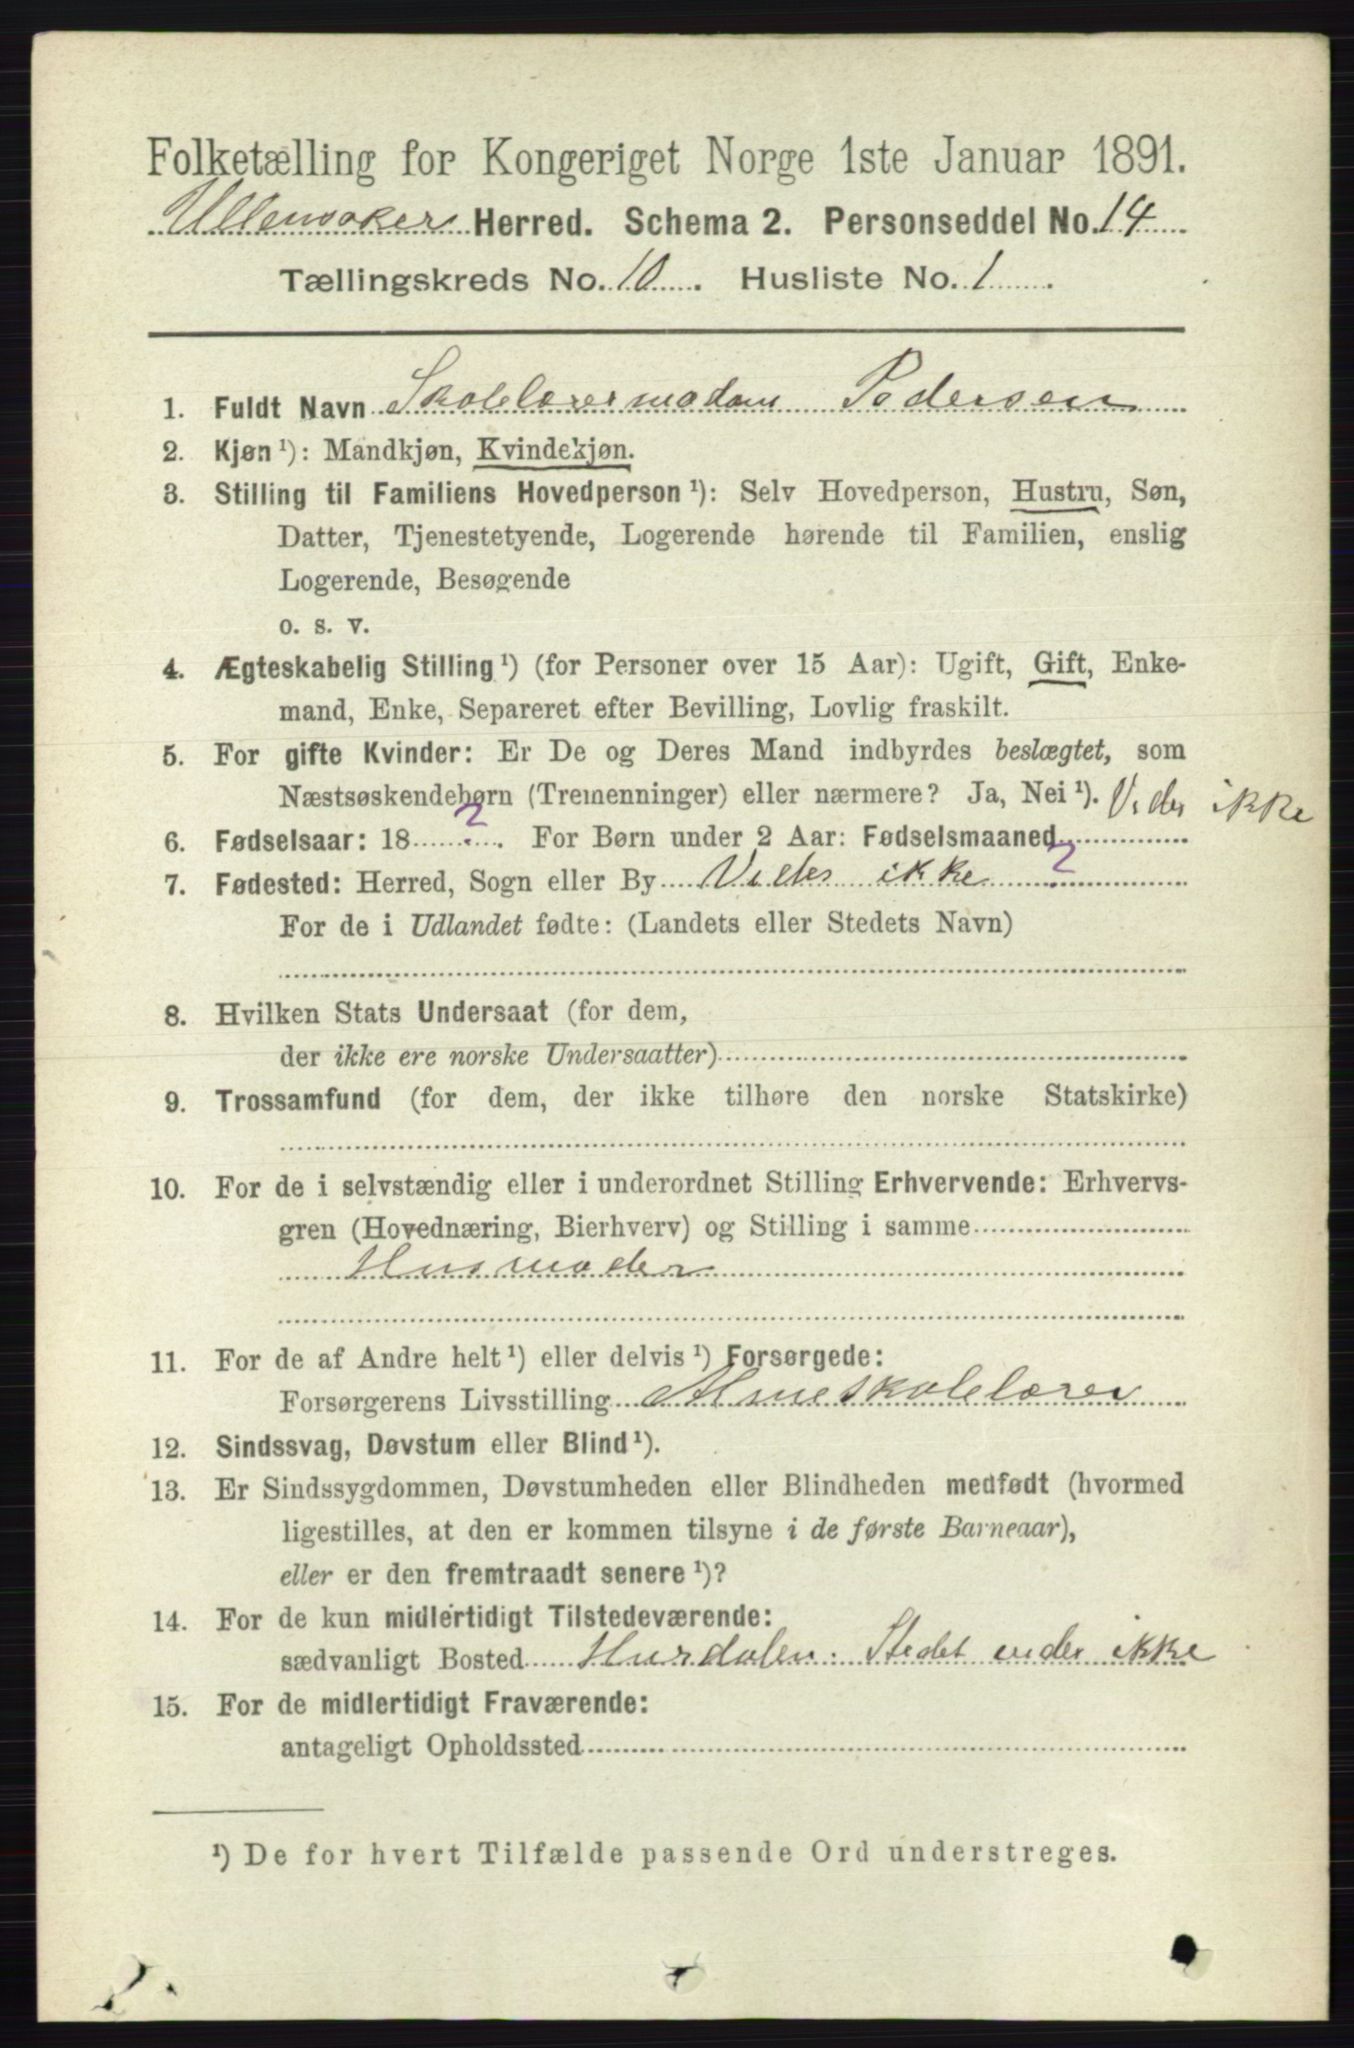 Folketælling for Kongeriget Norge 1ste Januar 1891.
Ullensaker Herred. Schema 2. Personseddel No. 14
Tællingskreds No. 10. Husliste No. 1
1. Fuldt Navn Skolelærermadam Pedersen
2. Kjøn ¹): Mandkjøn, Kvindekjøn.
3. Stilling til Familiens Hovedperson ¹): Selv Hovedperson, Hustru, Søn,
Datter, Tjenestetyende, Logerende hørende til Familien, enslig
Logerende, Besøgende
o. s. v.
4. Ægteskabelig Stilling ¹) (for Personer over 15 Aar): Ugift, Gift, Enke-
mand, Enke, Separeret efter Bevilling, Lovlig fraskilt.
5. For gifte Kvinder: Er De og Deres Mand indbyrdes beslægtet, som
Næstsøskendebørn (Tremenninger) eller nærmere? Ja, Nei ¹). Vides ikke
6. Fødselsaar: 18 ? . For Børn under 2 Aar: Fødselsmaaned
7. Fødested: Herred, Sogn eller By Vides ikke ?
For de i Udlandet fødte: (Landets eller Stedets Navn)
8. Hvilken Stats Undersaat (for dem,
der ikke ere norske Undersaatter)
9. Trossamfund (for dem, der ikke tilhøre den norske Statskirke)
10. For de i selvstændig eller i underordnet Stilling Erhvervende: Erhvervs-
gren (Hovednæring, Bierhverv) og Stilling i samme
Husmoder
11. For de af Andre helt ¹) eller delvis ¹) Forsørgede:
Forsørgerens Livsstilling Almeskolelærer
12. Sindssvag, Døvstum eller Blind ¹).
13. Er Sindssygdommen, Døvstumheden eller Blindheden medfødt (hvormed
ligestilles, at den er kommen tilsyne i de første Barneaar),
eller er den fremtraadt senere ¹)?
14. For de kun midlertidigt Tilstedeværende:
sædvanligt Bosted Hurdalen. Stedet vides ikke
15. For de midlertidigt Fraværende:
antageligt Opholdssted
¹) De for hvert Tilfælde passende Ord understreges.